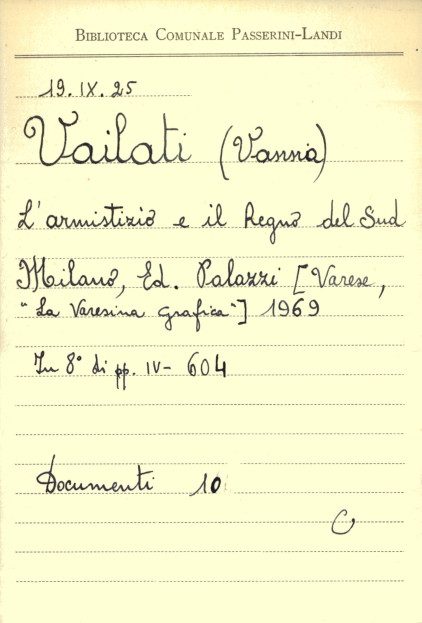 BIBLIOTECA COMUNALE PASSERINI-LANDI
19.IX.25
Vailati (Vanna)
L'armistizio e il Regno del Sud
Milano, Ed. Palazzi [Varese,
"La Varesina grafica"] 1969
In 8° di pp. IV- 604
Documenti 10
C